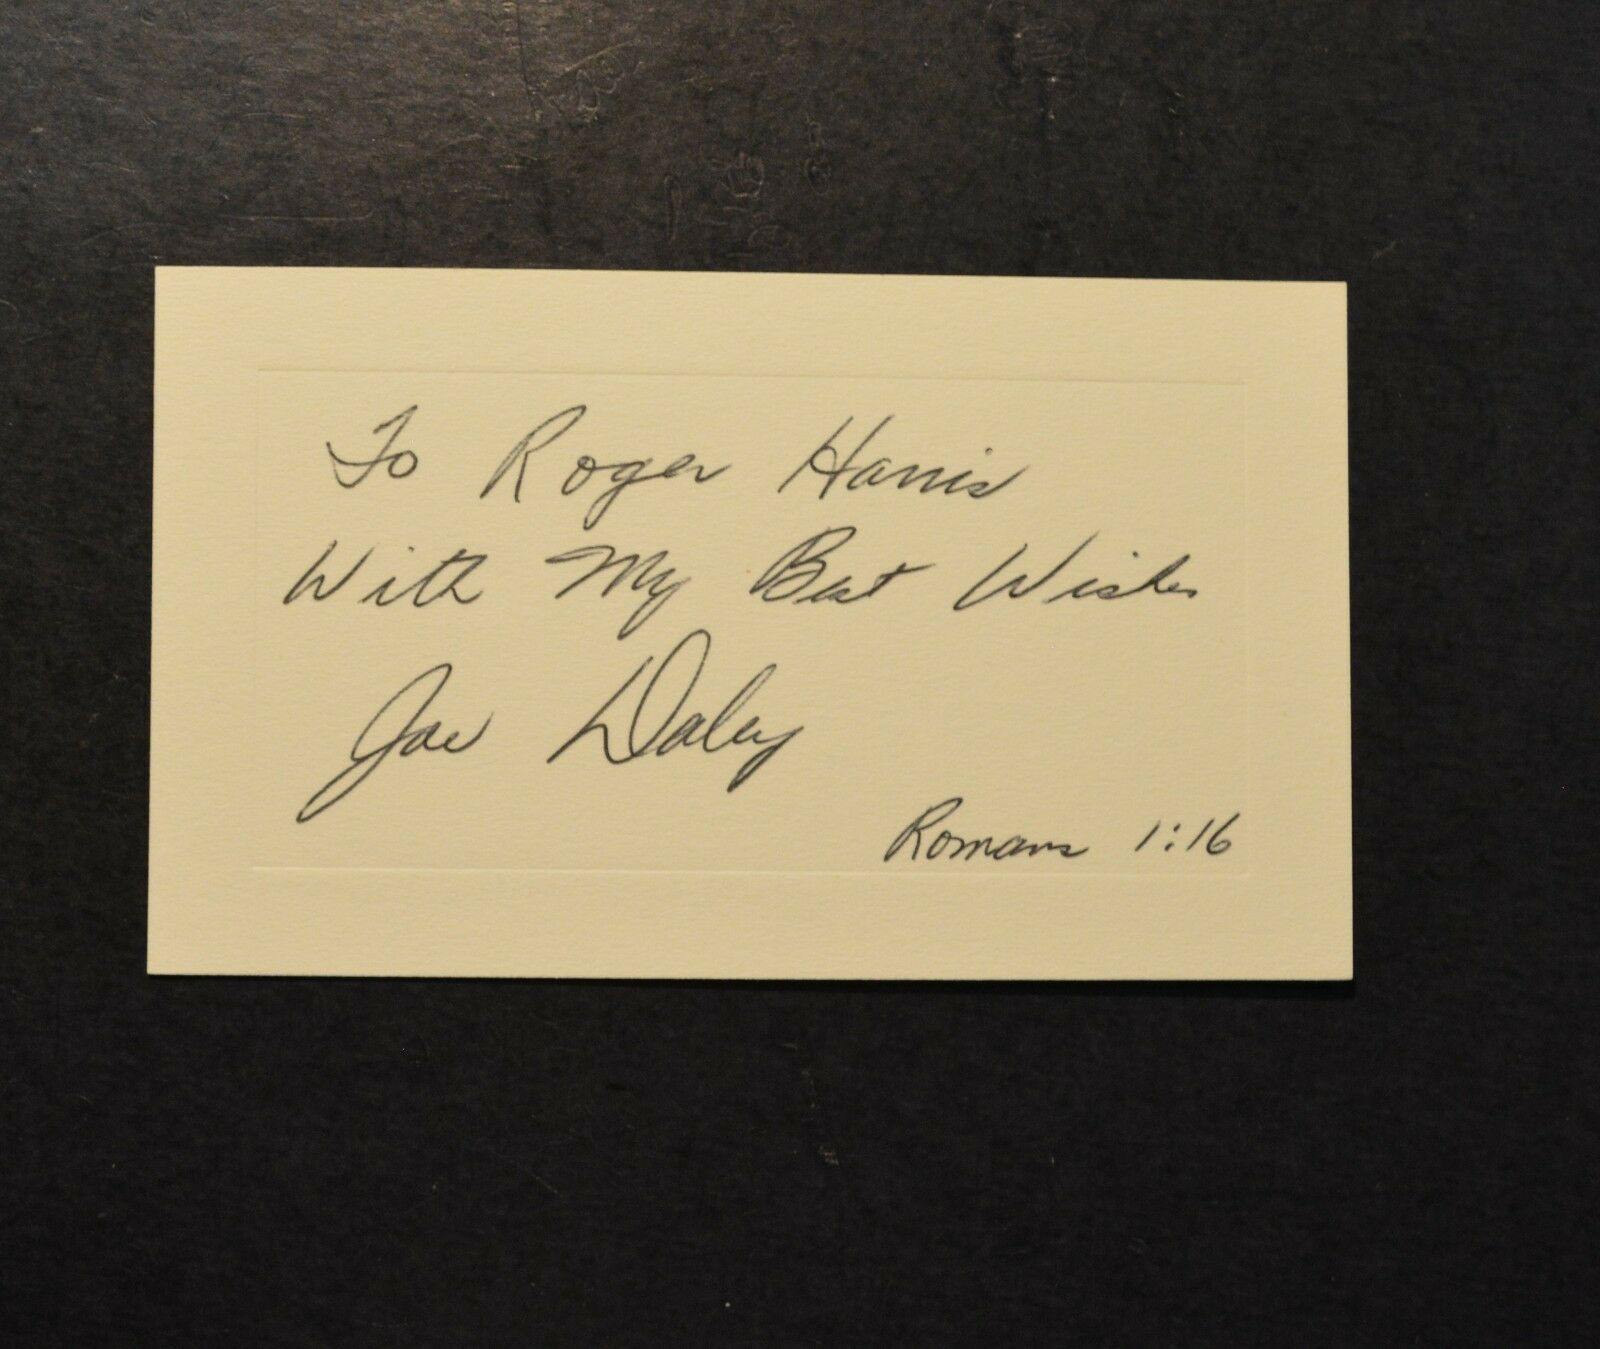 To Roger Harris
With My Best Wishes
Joe Daley
Romans 1:16